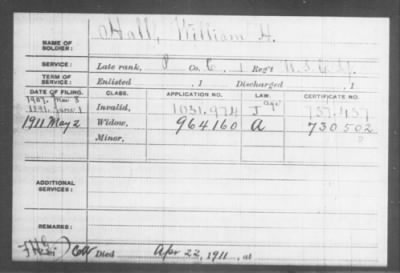 NAME OF SOLDIER: Hall, William H.
SERVICE: Late rank, P Co. C, 1 Reg't U.S.C.
TERM OF SERVICE: Enlisted , 1 Discharged , 1
DATE OF FILING. CLASS. APPLICATION NO. LAW. CERTIFICATE NO.
1907. Nov 8
1891. June 1 Invalid, 1031.974 J age
1911 May 2 Widow, 964160 A 730502
Minor,
ADDITIONAL SERVICES:
REMARKS:
Died Apr 22, 1911., at